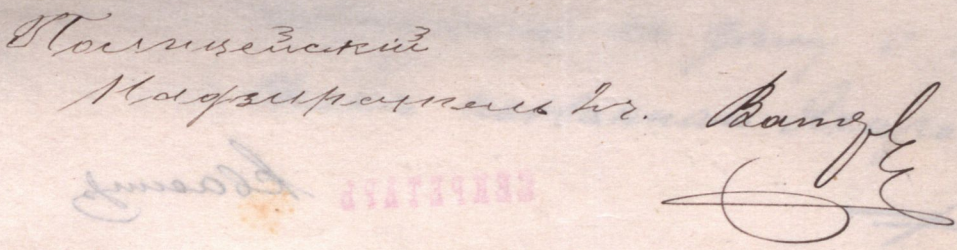 Полицейскій
Надзиратель 2 ч.
СЕКРЕТАРЬ